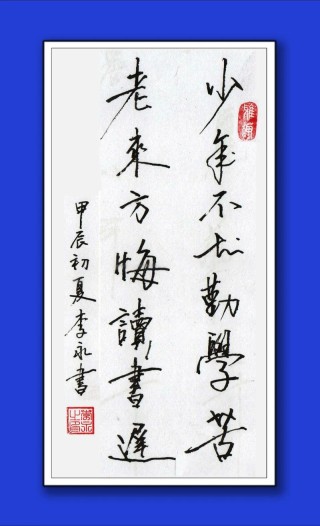 少年不知勤學苦
老來方悔讀書遲
甲辰初夏李永書